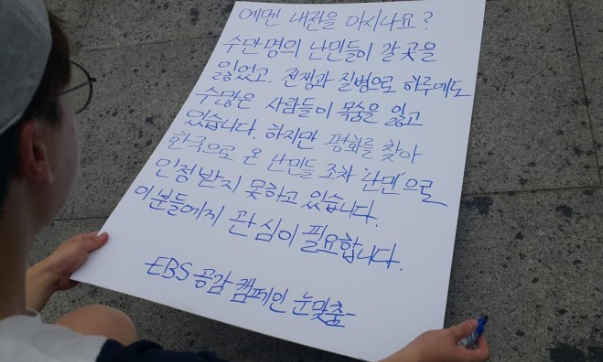 예멘 내전을 아시나요?
수만명의 난민들이 갈 곳을
잃었고. 전쟁과 질병으로 하루에도
수많은 사람들이 목숨을 잃고
있습니다. 하지만 평화를 찾아
한국으로 온 난민들 조차 '난민'으로
인정받지 못하고 있습니다.
이분들에게 관심이 필요합니다.
EBS 공감 캠페인 눈맞춤